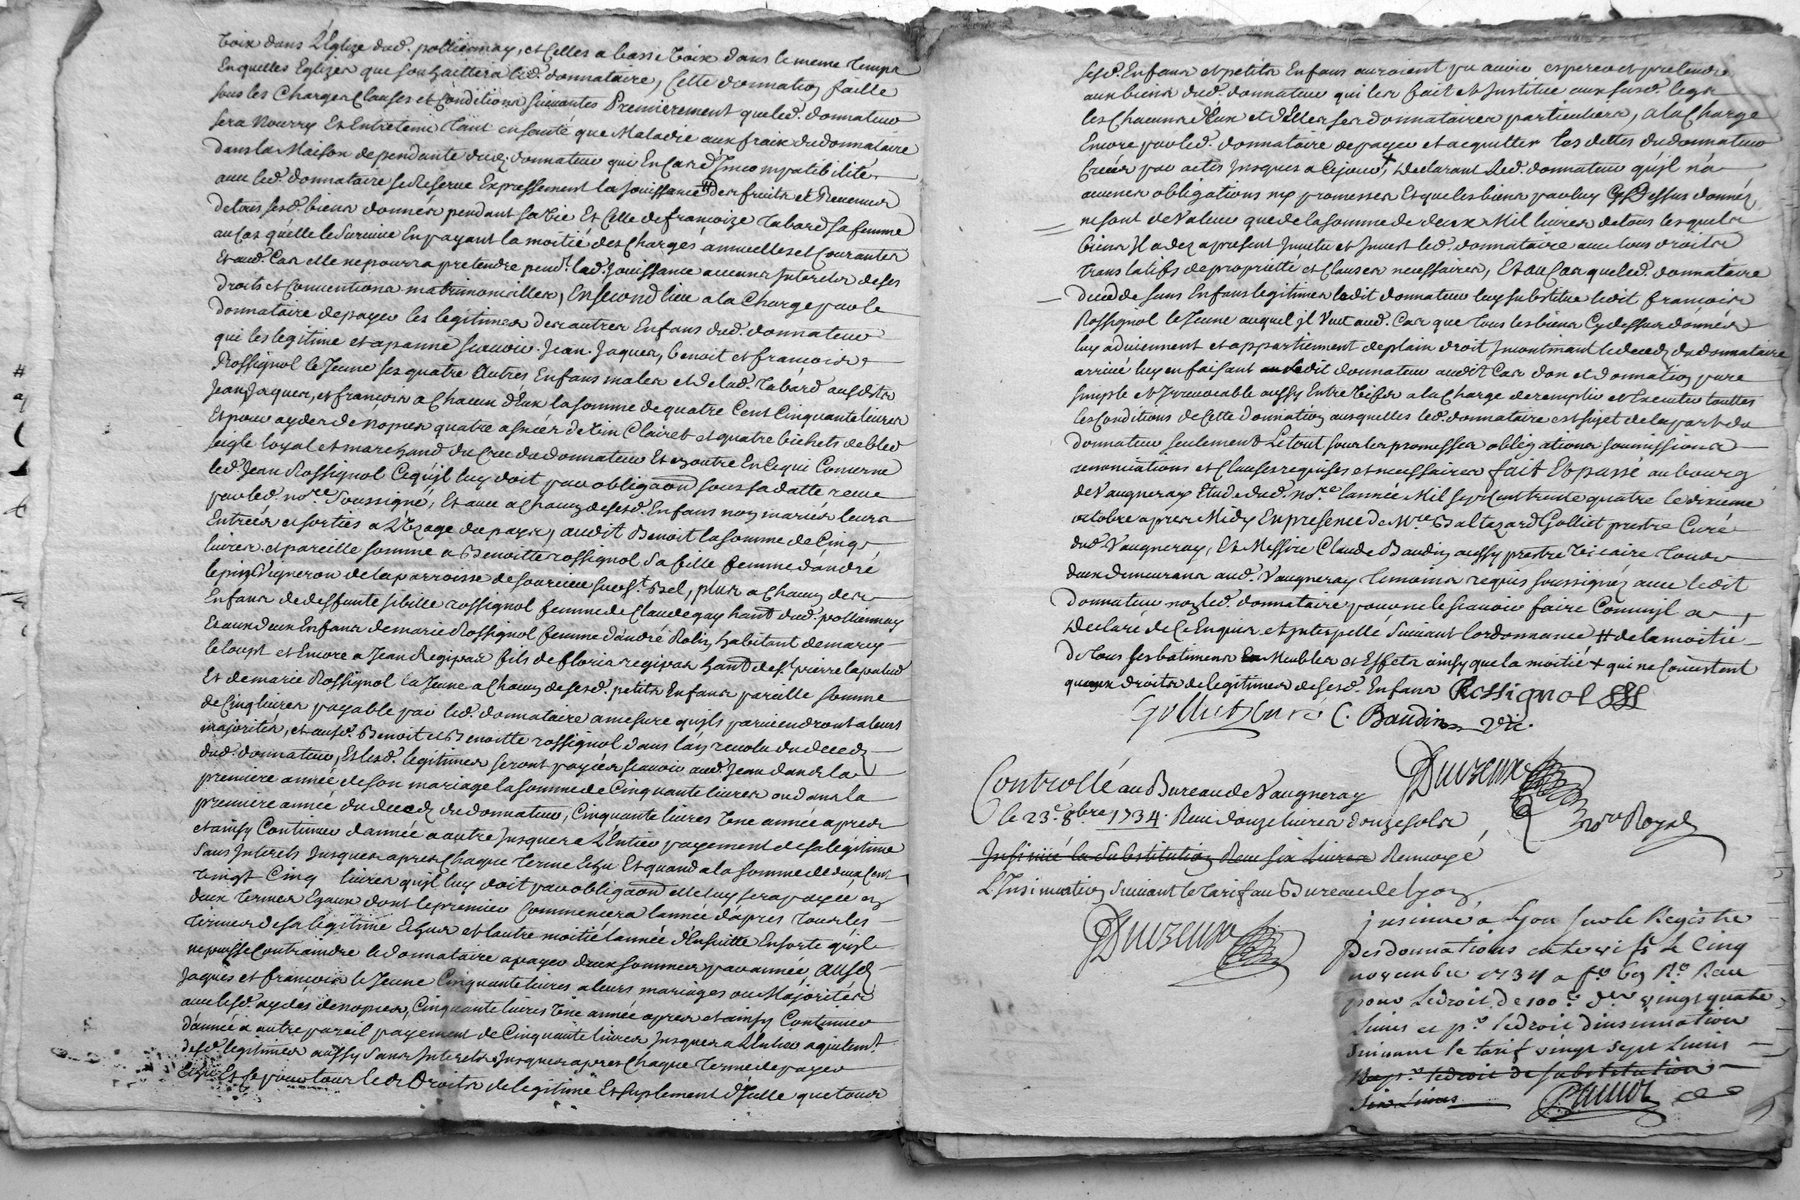 voix dans L'Eglize dud. pollionnay, et Celles a basse voix dans le meme temps
En quelles Eglizes que souhaittera led. donnataire, Cette donnation faitte
sous les Charges Clauses et Conditions suivantes Premierement que led. donnateur
sera Nourry Et Entretenu tant en santé que Maladie aux fraix du donnataire
dans la Maison dependante dud. donnateur qui En Cas d'Jncompatibilité
avec led. donnataire se Reserve Expressement la jouissance # des fruits et Revenus
de tous sesd. biens donnés pendant sa vie Et Celle de francoize Tabard sa femme
au Cas quelle le Survive En payant la moitié des Charges annuelles et Courantes
Et aud. Cas elle ne pourra pretendre pend.t lad. Jouissance aucuns Interets de ses
droits et Conventions matrimonialles, En second lieu a la Charge par le
donnataire de payer les legitimes des autres Enfans dud. donnateur
qui les legitime et apanne scavoir Jean Jaques, benoit et francois
Rossignol le Jeune ses quatre Autres Enfans males et de lad. Tabard ausdits
Jean Jaques, et francois a Chacun d'Eux la somme de quatre Cent Cinquante livres
Et pour aydes de nopces quatre asnées de vin Clairet et quatre bichets de bled
seigle loyal et marchand du Cru du donnateur Et en outre En Ce qui Concerne
led. Jean Rossignol Ce qu'jl luy doit par obligaôn sous sa datte receue
par led. no.re Soussigné, Et avec a Chacun desesd. Enfans non mariés leurs
Entrées et sorties a L'Uzage du pays, audit Benoit la somme de Cinq
livres et pareille somme a Benoitte rossignol sa fille femme d'andré
lepin Vigneron de la parroisse de sourcieu sur s.t Bel, plus a Chacun des
Enfans de deffunte sibille rossignol femme de Claude gay hant dud. pollionnay
Et aux deux Enfans de marie Rossignol femme d'andré Rolin habitant de marcy
le loup et Encore a Jean Regipas fils de floris regipas hant de s.t pierre la palud
Et de marie Rossignol la Jeune a Chacun desesd. petits Enfans pareille somme
de Cinq livres payable par led. donnataire a mesure qu'jls parviendront a leurs
majorités, et ausd. Benoit et Benoitte rossignol dans l'an revolu du decedz
dud. donnateur, Et lesd. legitimes seront payées scavoir aud. Jean dans la
premiere année de son mariage la somme de Cinquante livres ou dans la
premiere année du decedz du donnateur, Cinquante livres Une année apres
et ainsy Continuer d'année a autre Jusques a L'Entier payement de sa legitime
sans Jnterets Jusques apres Chaque Terme Echu Et quand a la somme de deux Cent
vingt Cinq livres qu'jl luy doit par obligaôn elle luy sera payée en
deux termes Egaux dont le premier Commencera l'année d'apres tous les
termes de sa legitime Echus et l'autre moitié l'année d'Ensuitte En sorte qu'jl
ne puisse Contraindre le donnataire a payer deux sommes par année, ausd.
Jaques et francois le Jeune Cinquante livres a leurs mariages ou Majorités
avec lesd. aydes de nopces, Cinquante livres Une année apres et ainsy Continuer
d'année a autre pareil payement de Cinquante livres Jusques a L'Entier aquitem.t
desd. legitimes aussy sans Jnterets Jusques apres Chaque terme de payer
Echu Et Ce pour tous les Droits de legitime Et suplement d'jcelle que tous
sesd. Enfans et petits Enfans auroient pu avoir esperer et pretendre
aux biens dud. donnateur qui les fait et Jnstitue aux susd. legs
les Chacuns d'Eux et d'Elles ses donnataires particuliers, a la Charge
Encore par led. donnataire de payer et acquitter les dettes du donnateur
Créées par actes Jusques a Ce jour, + Declarant led. donnateur qu'jl n'a
aucunes obligations ny promesses Et que les biens par luy Cy Dessus donnés
ne sont de Valeur que de la somme de deux Mil livres de tous lesquels
biens Jl a dez a present Jnvetu et Jnvest led. donnataire avec tous droits
translatifs de proprietté et Clauses necessaires, Et au Cas que led. donnataire
decedde sans Enfans legitimes ledit donnateur luy substitue ledit francois
Rossignol le Jeune auquel jl Veut aud. Cas que tous les biens Cy dessus donnés
luy adviennent et appartiennent de plain droit Jncontinant le decedz du donnataire
arrivé luy en faisant ledit donnateur audit Cas don et donnation pure
simple et Jrrevocable aussy Entre Vifs a la Charge de remplir et Executer touttes
les Conditions de Cette donnation ausquelles led. donnataire est sujet de la part du
donnateur seulement Le tout sous les promesses obligations soumissions
renonciations et Clauses requises et necessaires fait Et passé au bourg
de Vaugneray Etude dud. no.re l'année Mil sept Cent trente quatre le dixieme
octobre apres Midy En presence de M.re Baltazard Golliet prestre Curé
dud. Vaugneray, Et Messire Claude Baudin aussy prestre Vicaire tous
deux demeurans aud. Vaugneray temoins requis soussignez avec ledit
donnateur non led. donnataire pour ne le scavoir faire Comm'jl a
declaré de Ce Enquis et Jnterpellé Suivant l'ordonnance # de la moitié
de tous ses batimens Meubles et Effets ainsy que la moitié + qui ne Concistent
qu'aux droits de legitimes de sesd. Enfans Rossignol
Golliet Curé C. Baudin vic.
Duvzeux
no.re Royal
Controllé au Bureau de Vaugneray
le 23.e 8bre 1734. Receu douze livres douze sols
Jnsinué la Substitution Receu six Livres Renvoyé
L'Insinuation Suivant le tarif au Bureau de Lyon
Duvzeux
jnsinué a Lyon sur le Registre
Des donnations entre vifs Le Cinq
novembre 1734 a f.o R.o Receu
pour Le droit de 100.e d.r vingt quatre
Livres et p.r le droit d'insinuation
suivant le tarif vingt sept Livres
Et p.r le droit de substitution
Six Livres